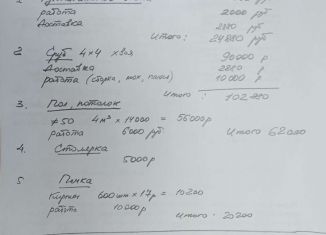 работа 2000 руб
Доставка 2280 руб
Итого: 24280 руб
2 Сруб 4×4 хвоя 90000 р
Доставка 2280 р
работа (сборка, мох, пакля) 10000 р
Итого: 102280
3. Пол, потолок
≠50 4м³ × 14000 = 56000р
работа 6000 руб. Итого 62000
4. Столярка
5000р
5 Печка
Кирпич 600шт × 17р = 10200
работа 10000р Итого: 20200